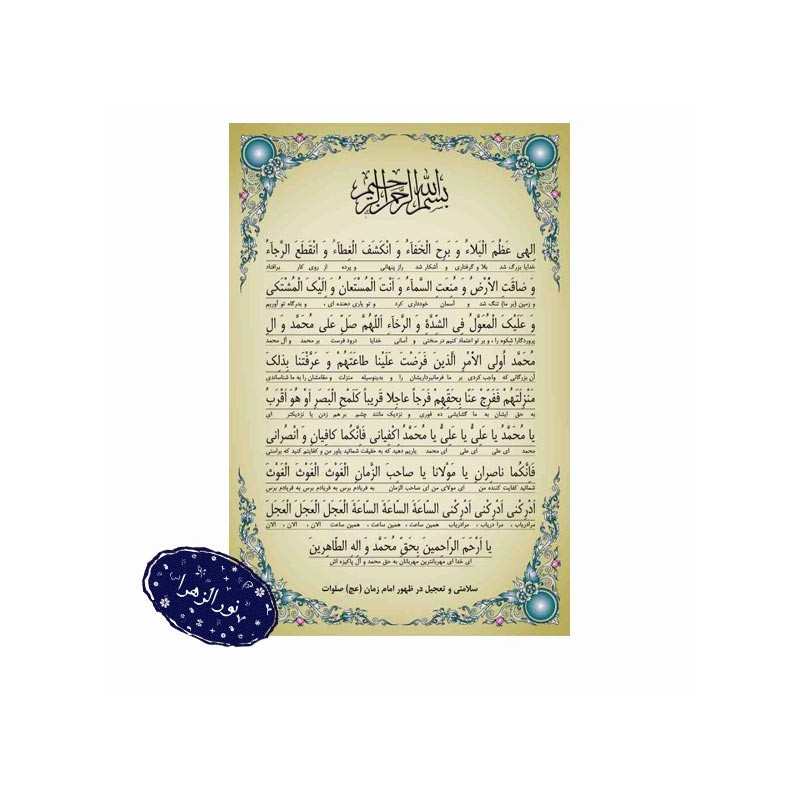 بسم الله الرحمن الرحیم
اِلهی عَظُمَ الْبَلاءُ وَ بَرِحَ الْخَفاءُ وَ انْکَشَفَ الْغِطاءُ وَ انْقَطَعَ الرَّجاءُ
خدایا بزرگ شد بلا و گرفتاری و آشکار شد راز پنهانی و پرده از روی کار برافتاد
وَ ضاقَتِ الْاَرْضُ وَ مُنِعَتِ السَّماءُ وَ اَنْتَ الْمُسْتَعانُ وَ اِلَیْکَ الْمُشْتَکی
و زمین (بر ما) تنگ شد و آسمان خودداری کرد و تو یاری دهنده ای ، و بدرگاه تو آوریم
وَ عَلَیْکَ الْمُعَوَّلُ فِی الشِّدَّةِ وَ الرَّخاءِ اَللّهُمَّ صَلِّ عَلی مُحَمَّد وَ الِ
پروردگارا شکوه را ، و بر تو اعتماد کنیم در سختی و آسانی خدایا درود فرست بر محمد و آل محمد
مُحَمَّد اُولِی الْاَمْرِ الَّذینَ فَرَضْتَ عَلَیْنا طاعَتَهُمْ وَ عَرَّفْتَنا بِذلِکَ
آن بزرگانی که واجب کردی بر ما فرمانبرداریشان را و بدینوسیله منزلت و مقامشان را به ما شناساندی
مَنْزِلَتَهُمْ فَفَرِّجْ عَنّا بِحَقِّهِمْ فَرَجاً عاجِلا قَریباً کَلَمْحِ الْبَصَرِ اَوْ هُوَ اَقْرَبُ
به حق ایشان به ما گشایشی ده فوری و نزدیک مانند چشم بر هم زدن یا نزدیکتر ای
یا مُحَمَّدُ یا عَلِیُّ یا عَلِیُّ یا مُحَمَّدُ اِکْفِیانی فَاِنَّکُما کافِیانِ وَ انْصُرانی
محمد ای علی ای علی ای محمد یاریم دهید که به حقیقت شمائید یاور من و کفایتم کنید که براستی
فَاِنَّکُما ناصِرانِ یا مَوْلانا یا صاحِبَ الزَّمانِ الْغَوْثَ الْغَوْثَ الْغَوْثَ
شمائید کفایت کننده من ای مولای من ای صاحب الزمان به فریادم برس به فریادم برس به فریادم برس
اَدْرِکْنی اَدْرِکْنی اَدْرِکْنی السّاعَةَ السّاعَةَ السّاعَةَ الْعَجَلَ الْعَجَلَ الْعَجَلَ
مرادریاب ، مرا دریاب ، مرادریاب همین ساعت ، همین ساعت ، همین ساعت الان ، الان ، الان
یا اَرْحَمَ الرّاحِمینَ بِحَقِّ مُحَمَّد وَ الِهِ الطّاهِرینَ
ای خدا ای مهربانترین مهربانان به حق محمد و آل پاکیزه اش
سلامتی و تعجیل در ظهور امام زمان (عج) صلوات
نورالزهرا